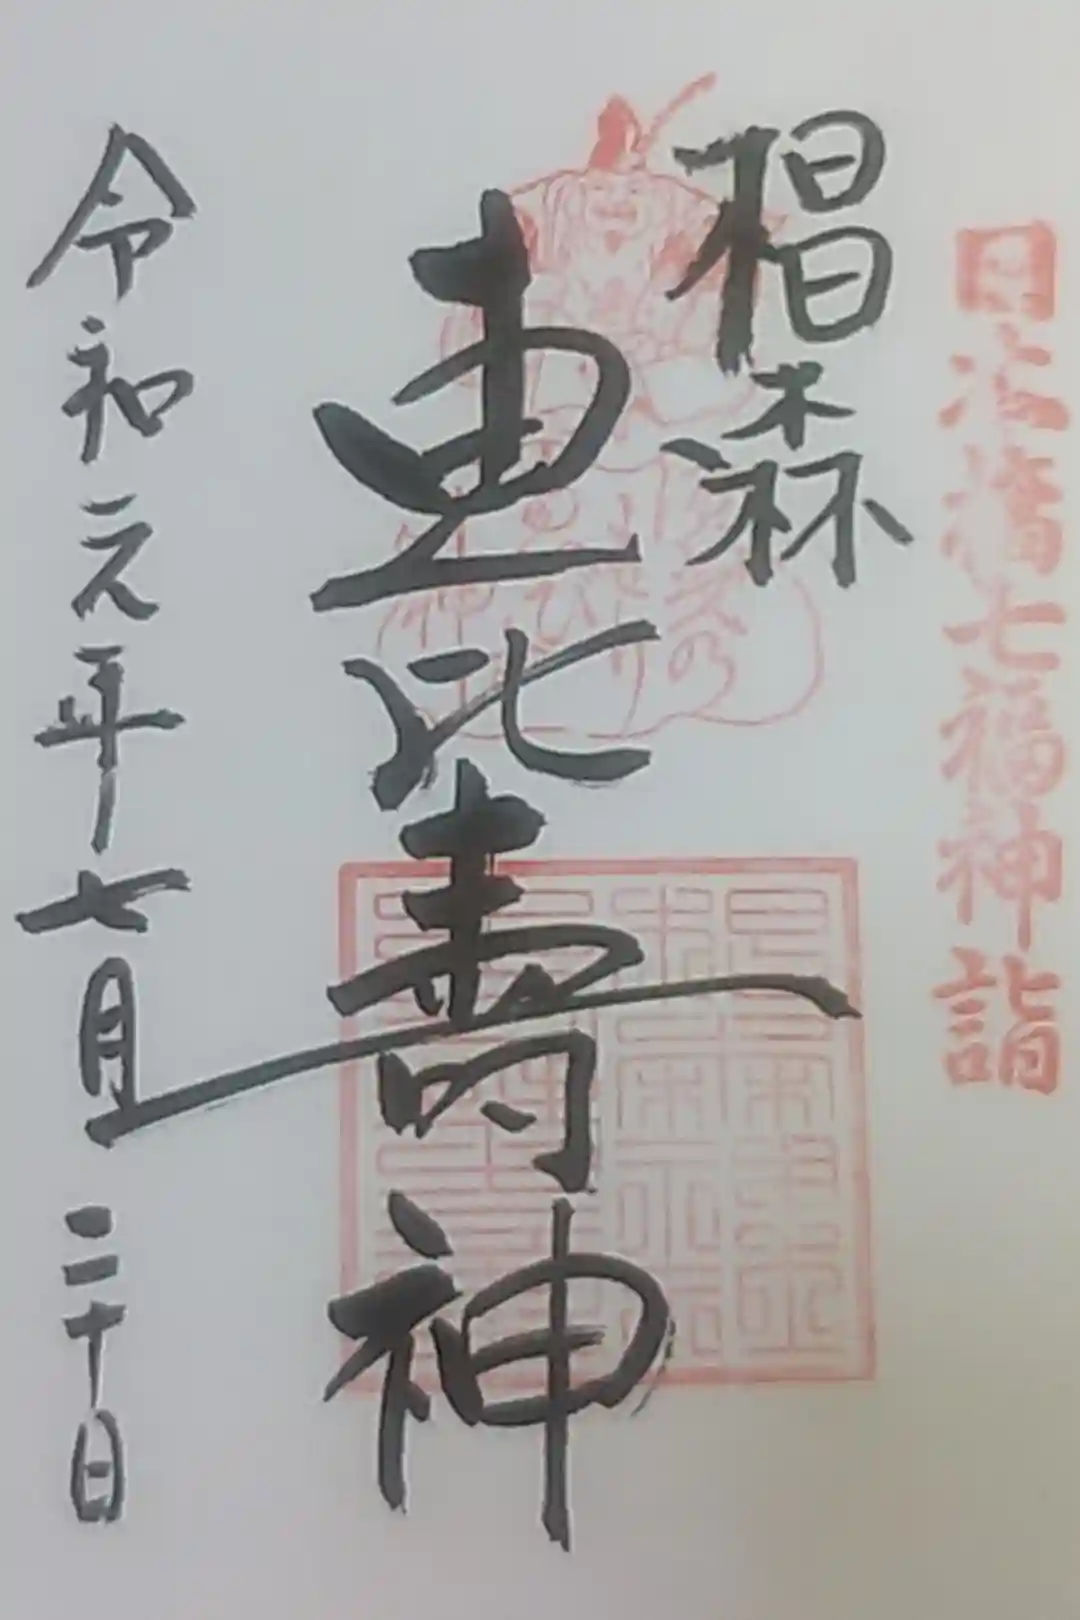 日本橋七福神詣
椙森
恵比壽神
令和元年七月二十日